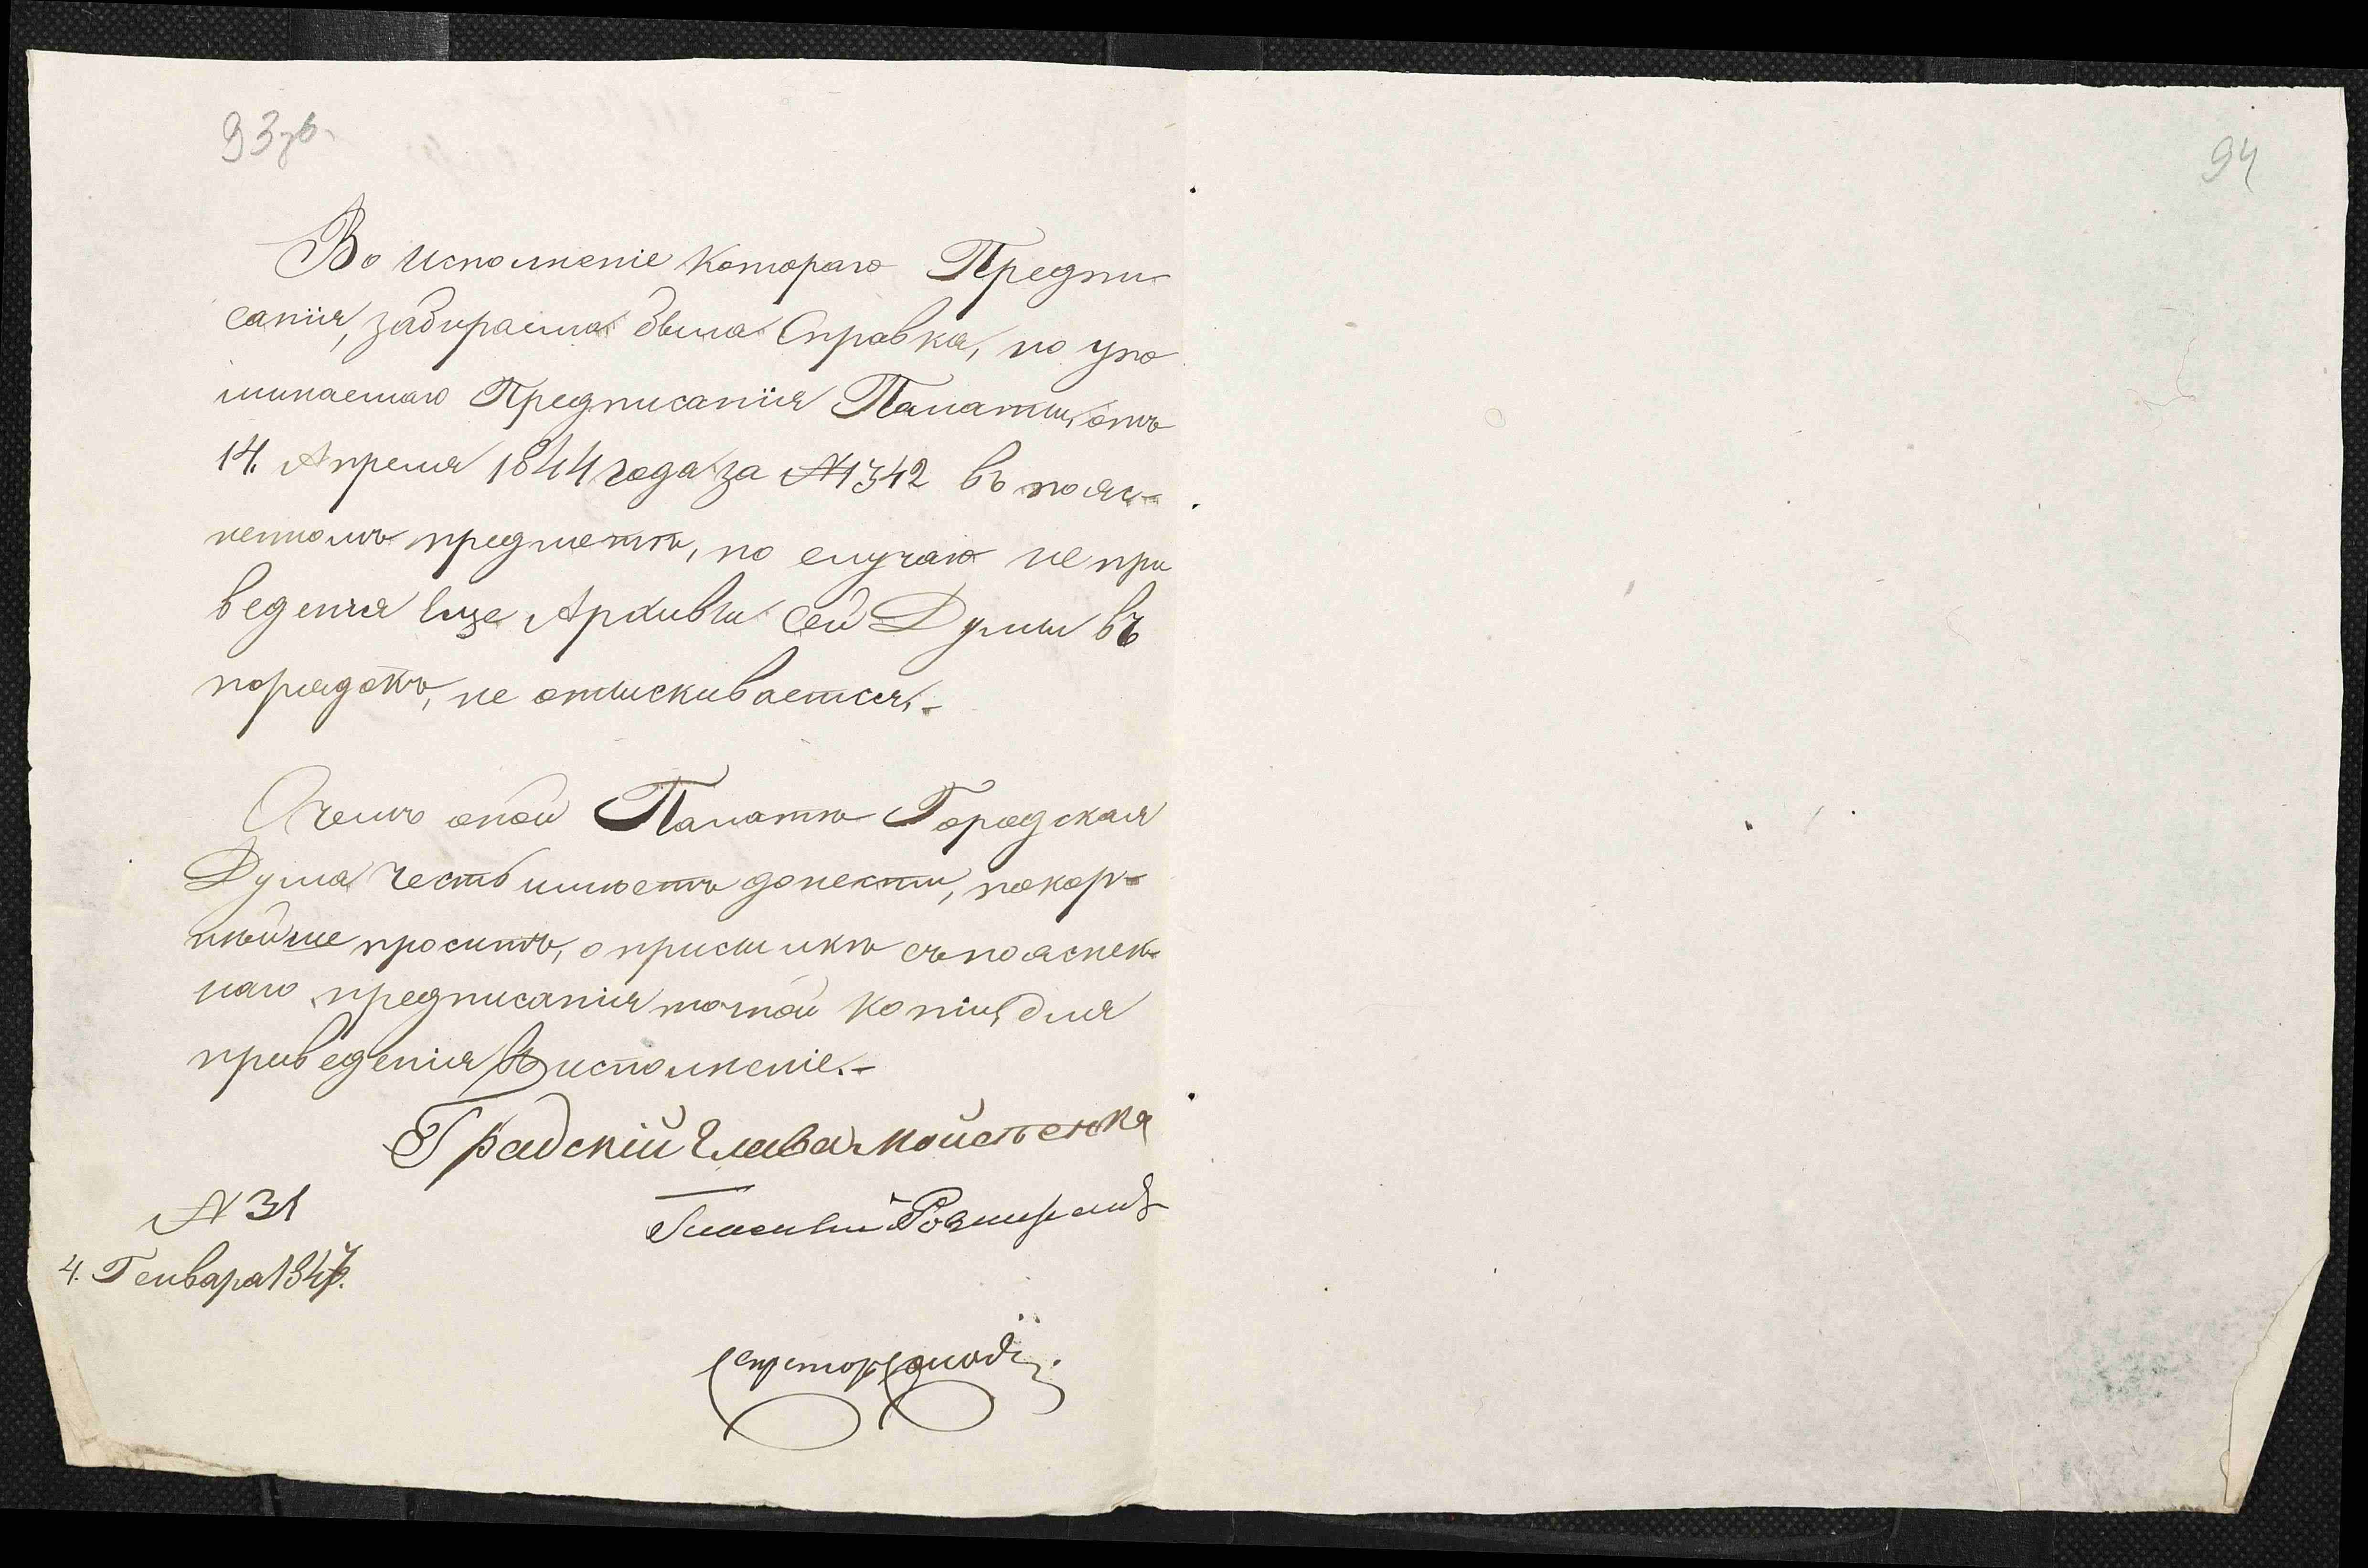 93 об.
94
Во исполненіе котораго Предпи
санія, забираема была Справка, но упо
минаемаго Предписанія Палаты, отъ
14. Апреля 1844 года за № 1342 въ пояс-
ненномъ предметѣ, по случаю не при
веденія еще Архивы сей Думы въ
порядокъ, не отыскивается.-
О чемъ оной Палатѣ Городская
Дума честь имѣетъ донести, покор-
нѣйше просить, о присылкѣ съ пояснен-
наго предписанія точной копіи, для
приведенія въ исполненіе.-
Градскій Глава
Гласный
№ 31
4. Генваря 1847.
Секретарь